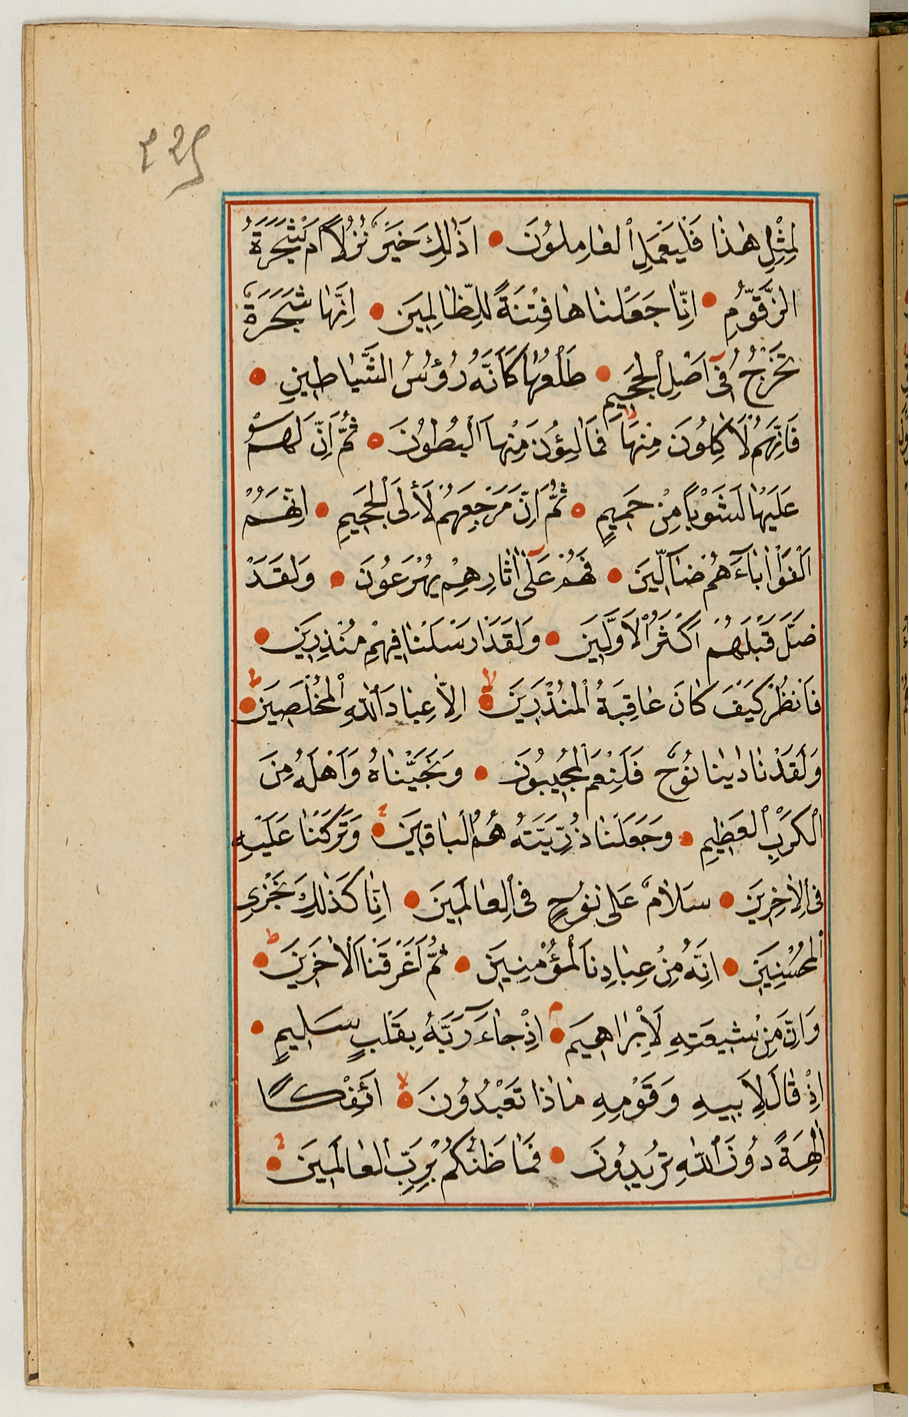 ٤٤٩
لِمِثْلِ هٰذَا فَلْيَعْمَلِ الْعَامِلُونَ اَذٰلِكَ خَيْرٌ نُزُلًا اَمْ شَجَرَةُ
الزَّقُّومِ اِنَّا جَعَلْنَاهَا فِتْنَةً لِلظَّالِمِينَ اِنَّهَا شَجَرَةٌ
تَخْرُجُ فٓى اَصْلِ الْجَحِيمِ طَلْعُهَا كَاَنَّهُ رُؤُسُ الشَّيَاطِينِ
فَاِنَّهُمْ لَاٰكِلُونَ مِنْهَا فَمَالِؤُنَ مِنْهَا الْبُطُونَ ثُمَّ اِنَّ لَهُمْ
عَلَيْهَا لَشَوْبًا مِنْ حَمِيمٍ ثُمَّ اِنَّ مَرْجِعَهُمْ لَاِلَى الْجَحِيمِ اِنَّهُمْ
اَلْفَوْا اٰبَآءَهُمْ ضَآلِّينَ فَهُمْ عَلٰٓى اٰثَارِهِمْ يُهْرَعُونَ وَلَقَدْ
ضَلَّ قَبْلَهُمْ اَكْثَرُ الْاَوَّلِينَ وَلَقَدْ اَرْسَلْنَا فِيهِمْ مُنْذِرِينَ
فَانْظُرْ كَيْفَ كَانَ عَاقِبَةُ الْمُنْذَرِينَ اِلَّا عِبَادَ اللّٰهِ الْمُخْلَصِينَ
وَلَقَدْ نَادٰينَا نُوحٌ فَلَنِعْمَ الْمُجِيبُونَ وَنَجَّيْنَاهُ وَاَهْلَهُ مِنَ
الْكَرْبِ الْعَظِيمِ وَجَعَلْنَا ذُرِّيَّتَهُ هُمُ الْبَاقِينَ وَتَرَكْنَا عَلَيْهِ
فِى الْاٰخِرِينَ سَلَامٌ عَلٰى نُوحٍ فِى الْعَالَمِينَ اِنَّا كَذٰلِكَ نَجْزِى
الْمُحْسِنِينَ اِنَّهُ مِنْ عِبَادِنَا الْمُؤْمِنِينَ ثُمَّ اَغْرَقْنَا الْاٰخَرِينَ
وَاِنَّ مِنْ شِيعَتِهِ لَاِبْرَاهِيمَ اِذْ جَآءَ رَبَّهُ بِقَلْبٍ سَلِيمٍ
اِذْ قَالَ لِاَبِيهِ وَقَوْمِهِ مَاذَا تَعْبُدُونَ اَئِفْكًا
اٰلِهَةً دُونَ اللّٰهِ تُرِيدُونَ فَمَا ظَنُّكُمْ بِرَبِّ الْعَالَمِينَ